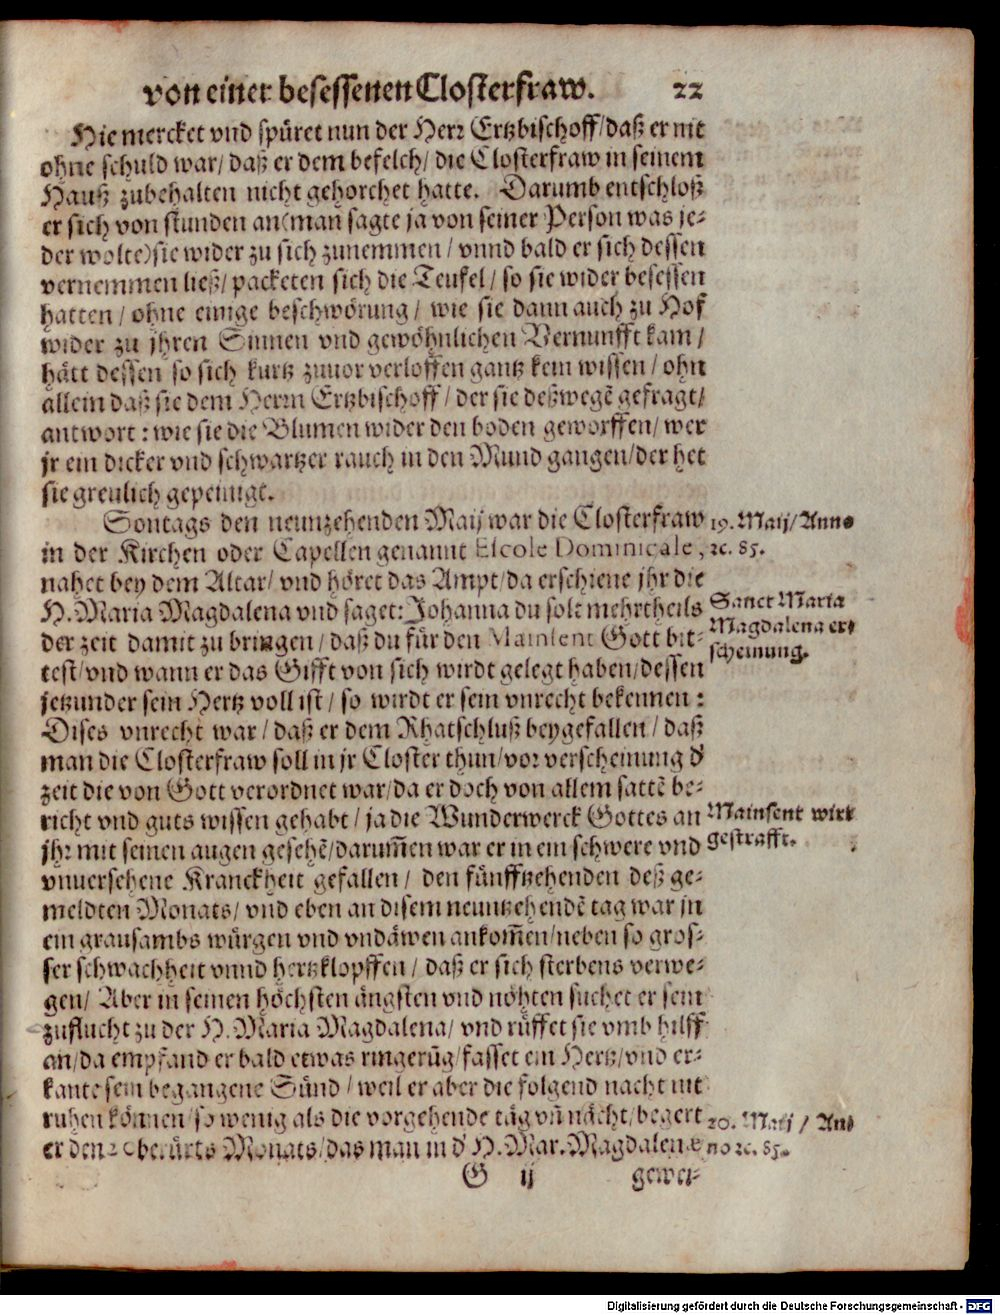 von einer besessenen Closterfraw. 22
Hie mercket vnd spüret nun der Herr Ertzbischoff/daß er nit
ohne schuld war/daß er dem befelch/die Closterfraw in seinem
Hauß zubehalten nicht gehorchet hatte. Darumb entschloß
er sich von stunden an(man sagte ja von seiner Person was je-
der wolte)sie wider zu sich zunemmen/vnnd bald er sich dessen
vernemmen ließ/packeten sich die Teufel/so sie wider besessen
hatten/ohne einige beschwörung/wie sie dann auch zu Hof
wider zu jhren Sinnen vnd gewöhnlichen Vernunfft kam/
hätt dessen so sich kurtz zuuor verloffen gantz kein wissen/ohn
allein daß sie dem Herrn Ertzbischoff/der sie deßwegẽ gefragt/
antwort: wie sie die Blumen wider den boden geworffen/wer
jr ein dicker vnd schwartzer rauch in den Mund gangen/der het
sie greulich gepeinigt.
Sontags den neunzehenden Maij war die Closterfraw
19. Maij/Anno
in der Kirchen oder Capellen genannt Escole Dominicale,
ꝛc. 85.
nahet bey dem Altar/vnd höret das Ampt/da erschiene jhr die
H. Maria Magdalena vnd saget: Johanna du solt mehrtheils
Sanct Maria
der zeit damit zu bringen/daß du für den Mainsent Gott bit-
Magdalena er-
test/vnd wann er das Gifft von sich wirdt gelegt haben/dessen
scheinung.
jetzunder sein Hertz voll ist/so wirdt er sein vnrecht bekennen:
Dises vnrecht war/daß er dem Rhatschluß beygefallen/daß
man die Closterfraw soll in jr Closter thun/vor verscheinung d'
zeit die von Gott verordnet war/da er doch von allem sattẽ be-
richt vnd guts wissen gehabt/ja die Wunderwerck Gottes an
Mainsent wirt
jhr mit seinen augen gesehẽ/darum̃en war er in ein schwere vnd
gestrafft.
vnuersehene Kranckheit gefallen/den fünfftzehenden deß ge-
meldten Monats/vnd eben an disem neuntzehendẽ tag war jn
ein grausambs würgen vnd vndäwen ankom̃en/neben so gros-
ser schwachheit vnnd hertzklopffen/daß er sich sterbens verwe-
gen/Aber in seinen höchsten ängsten vnd nöhten suchet er sein
zuflucht zu der H. Maria Magdalena/vnd rüffet sie vmb hilff
an/da empfand er bald etwas ringerũg/fasset ein Hertz/vnd er-
kante sein begangene Sünd/weil er aber die folgend nacht nit
ruhen können/so wenig als die vorgehende täg vñ nächt/begert
20. Maij/An-
er den 20 berürts Monats/das man in d' H. Mar. Magdalenæ
no ꝛc. 85.
G ij gewei-
Digitalisierung gefördert durch die Deutsche Forschungsgemeinschaft - DFG